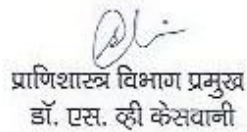 प्राणिशास्त्र विभाग प्रमुख
डॉ. एस. व्ही केसवानी